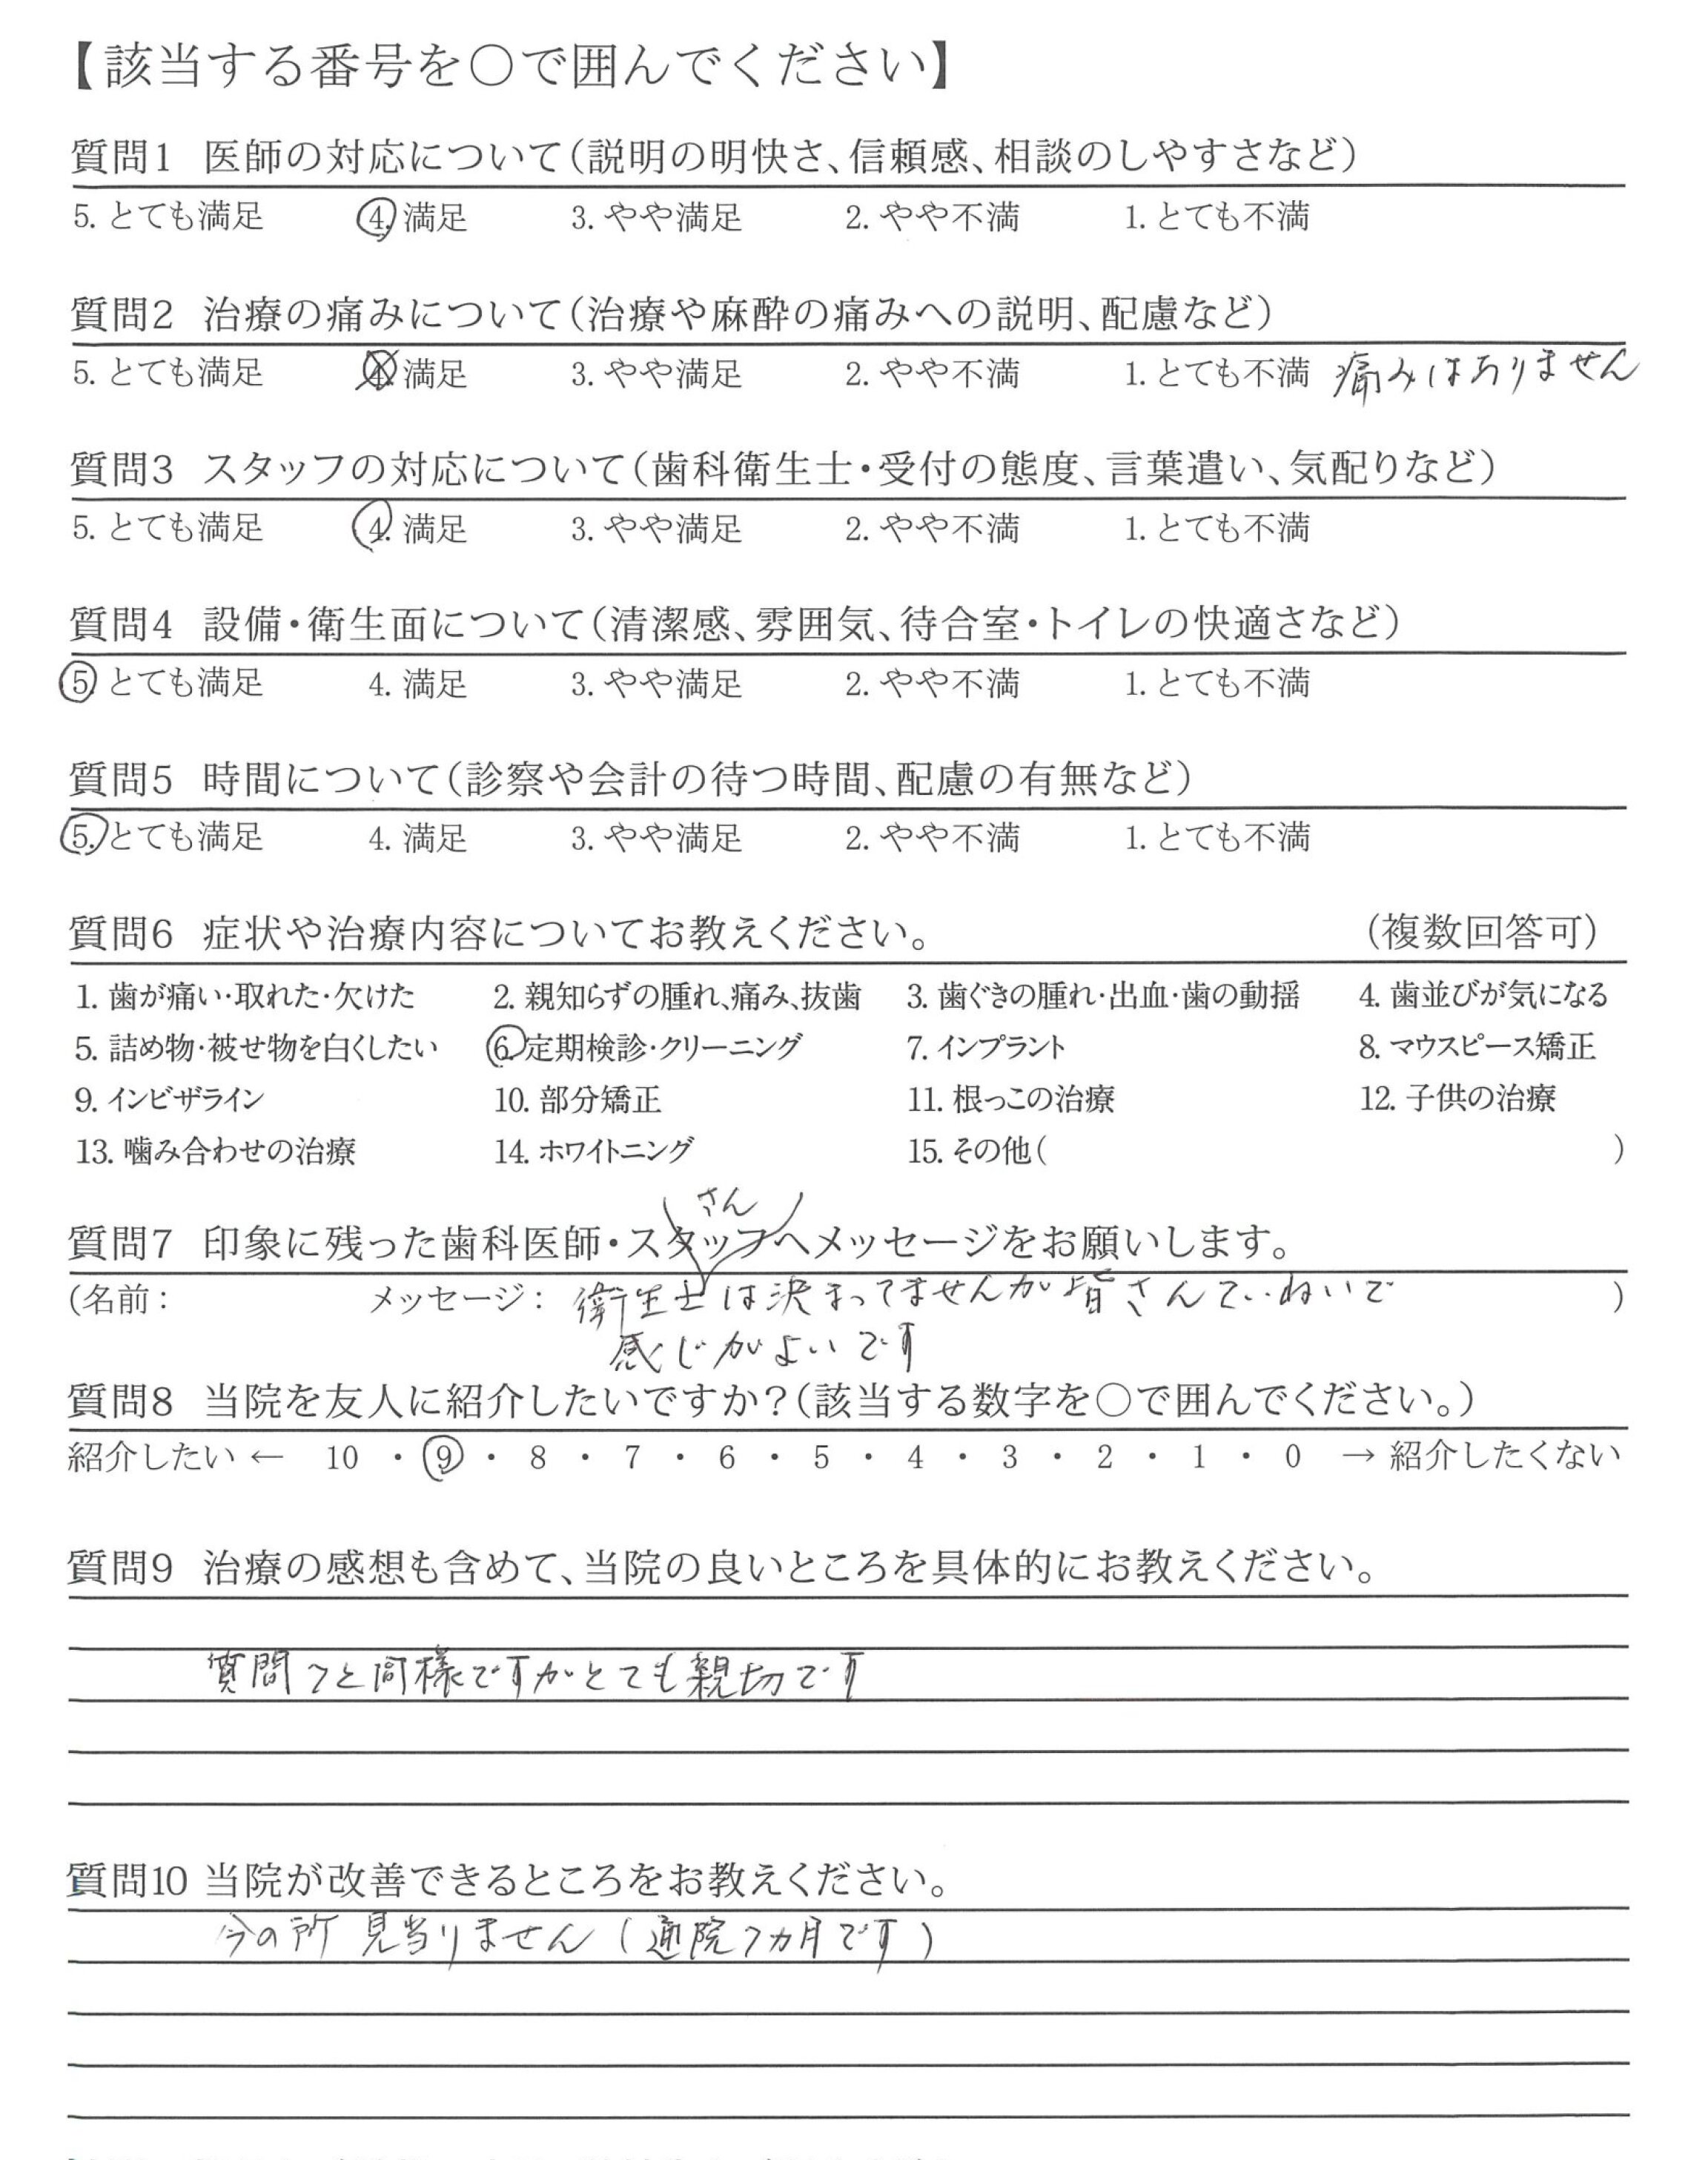 【該当する番号を○で囲んでください】
質問1 医師の対応について(説明の明快さ、信頼感、相談のしやすさなど)
5. とても満足 4. 満足 3. やや満足 2. やや不満 1. とても不満
質問2 治療の痛みについて(治療や麻酔の痛みへの説明、配慮など)
5. とても満足 4. 満足 3. やや満足 2. やや不満 1. とても不満 痛みはありません
質問3 スタッフの対応について(歯科衛生士・受付の態度、言葉遣い、気配りなど)
5. とても満足 4. 満足 3. やや満足 2. やや不満 1. とても不満
質問4 設備・衛生面について(清潔感、雰囲気、待合室・トイレの快適さなど)
5. とても満足 4. 満足 3. やや満足 2. やや不満 1. とても不満
質問5 時間について(診察や会計の待つ時間、配慮の有無など)
5. とても満足 4. 満足 3. やや満足 2. やや不満 1. とても不満
質問6 症状や治療内容についてお教えください。 (複数回答可)
1. 歯が痛い・取れた・欠けた 2. 親知らずの腫れ、痛み、抜歯 3. 歯ぐきの腫れ・出血・歯の動揺 4. 歯並びが気になる
5. 詰め物・被せ物を白くしたい 6. 定期検診・クリーニング 7. インプラント 8. マウスピース矯正
9. インビザライン 10. 部分矯正 11. 根っこの治療 12. 子供の治療
13. 噛み合わせの治療 14. ホワイトニング 15. その他( )
さん
質問7 印象に残った歯科医師・スタッフへメッセージをお願いします。
(名前: メッセージ: 衛生士は決まってませんが皆さんていねいで )
感じがよいです
質問8 当院を友人に紹介したいですか?(該当する数字を○で囲んでください。)
紹介したい ← 10 ・ 9 ・ 8 ・ 7 ・ 6 ・ 5 ・ 4 ・ 3 ・ 2 ・ 1 ・ 0 → 紹介したくない
質問9 治療の感想も含めて、当院の良いところを具体的にお教えください。
質問7と同様ですがとても親切です
質問10 当院が改善できるところをお教えください。
今の所 見当りません (通院7カ月です)